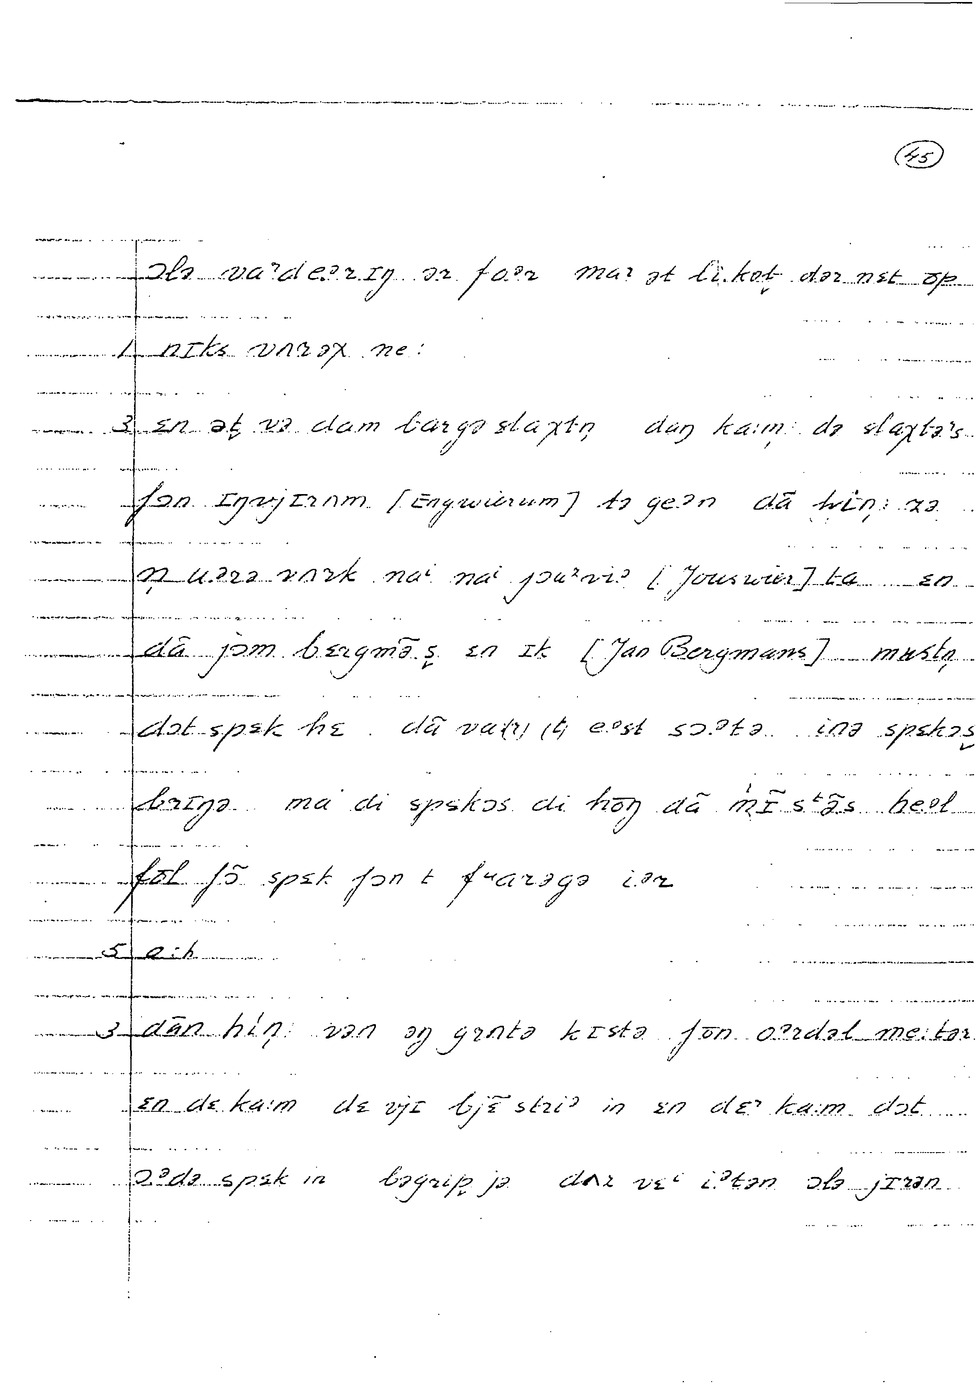 45
ɔlə vaʳdeərɪŋ ər foər maʳ ət li.kət̬ dər nɛt ōp
1 nɪks vʌrəχ ne:
3 ɛn ət̬ və dam bargə slaχtn̩ daŋ ka:m̩ də slaχtəʳs
fən ɪŋvjɪrʌm [Engwierum] tə geən dā hin̩: zə
n̩ u.ərə vʌrk naⁱ naⁱ jɔuʳviᵊ [Jouswier] ta ɛn
dā jɔm bɛrgmə̄.s̬ ɛn ɪk [Jan Bergmans] mʉstn̩
dət spɛk hɛ dā va(r) (t) eᵊst sɔ.ᵊtə inə spɛkəs̬
brɪŋə maʳ di spɛkəs di hōŋ dā mī sᵗə̄s heəl
fōl fɔ̃ spɛk fən t fᵘarəgə i.ər
5 a:h
3 dān hin̩: vən əŋ grʌtə kɪstə fōn oəʳdəl me:tər
ɛn dɛ ka:m dɛ vjɪ bjɛ̄ striᵊ in ɛn dɛʳ ka:m dət
ɔ.ᵊdə spɛk in bəgrip̬ jə dʌr vɛⁱ i.ᵊtən ɔlə jɪrən